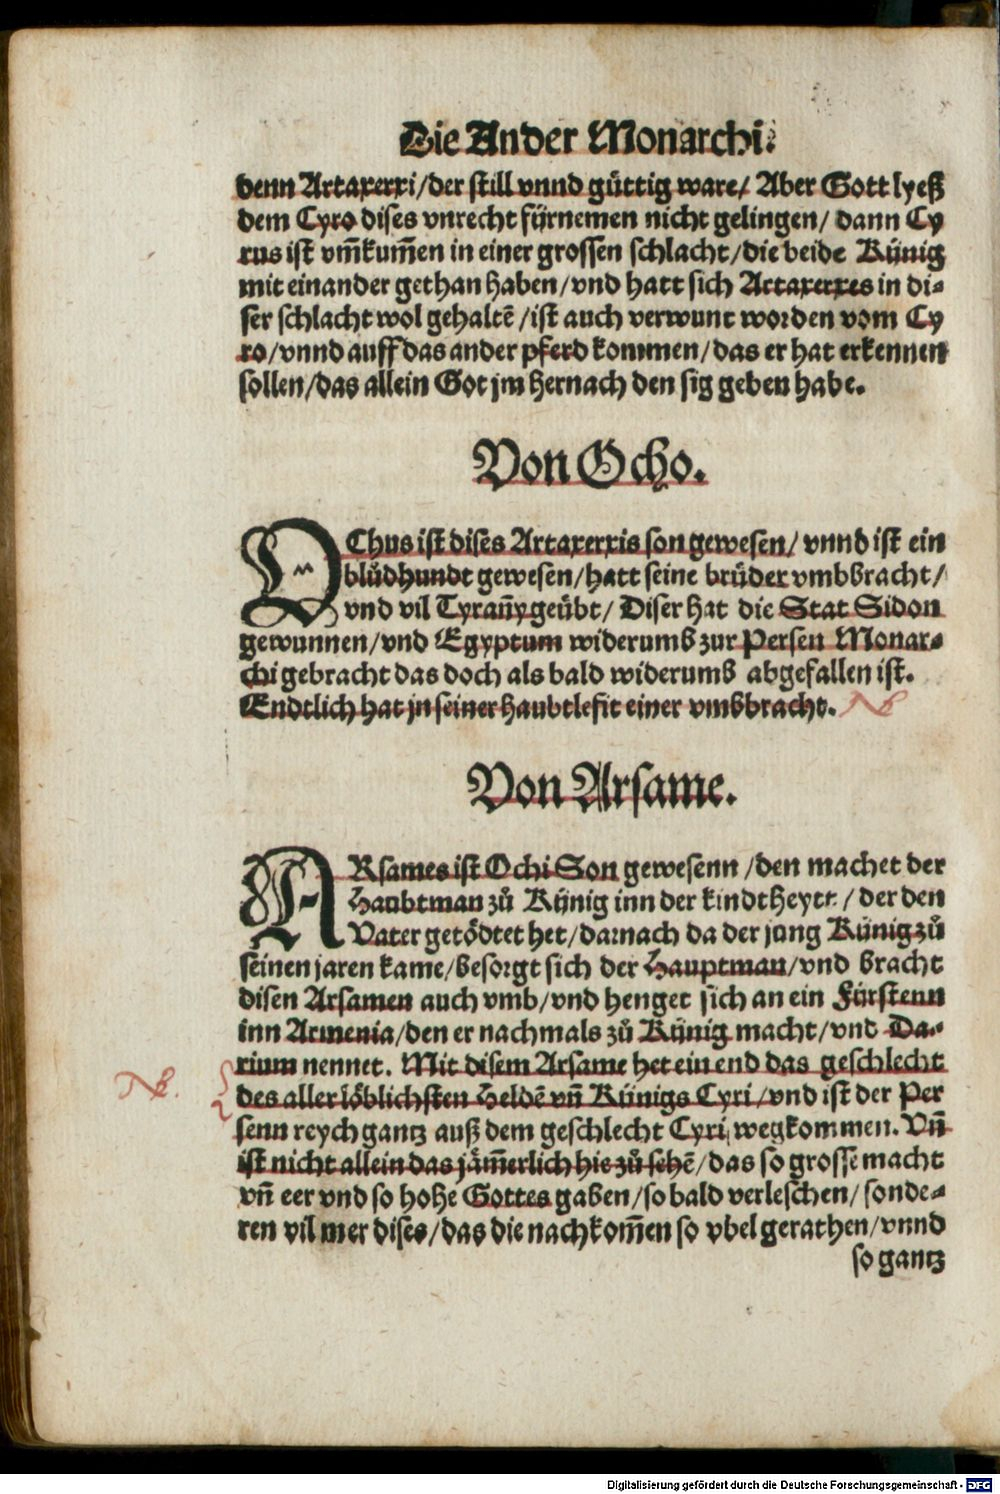 Die Ander Monarchi.
denn Artaxerxi/der still vnnd güttig ware/ Aber Gott lyeß
dem Cyro dises vnrecht fürnemen nicht gelingen/ dann Cy
rus ist vm̄kum̄en in einer grossen schlacht/die beide Künig
mit einander gethan haben/vnd hatt sich Artaxerxes in di-
ser schlacht wol gehaltē/ist auch verwunt worden vom Cy
ro/vnnd auff das ander pferd kommen/das er hat erkennen
sollen/das allein Got jm hernach den sig geben habe.
Von Ocho.
OChus ist dises Artaxerxis son gewesen/ vnnd ist ein
blůdhundt gewesen/hatt seine brüder vmbbracht/
vnd vil Tyrañy geübt/ Diser hat die Stat Sidon
gewunnen/vnd Egyptum widerumb zur Persen Monar-
chi gebracht das doch als bald widerumb abgefallen ist.
Endtlich hat jn seiner haubtlefit einer vmbbracht. NB
Von Arsame.
ARsames ist Ochi Son gewesenn/den machet der
Haubtman zů Künig inn der kindtheytt/der den
Vater getödtet het/darnach da der jung Künig zů
seinen jaren kame/besorgt sich der Hauptman/vnd bracht
disen Arsamen auch vmb/vnd henget sich an ein Fürstenn
inn Armenia/den er nachmals zů Künig macht/vnd Da-
rium nennet. Mit disem Arsame het ein end das geschlecht
NB. des aller löblichsten Heldē vñ Künigs Cyri/vnd ist der Per
senn reych gantz auß dem geschlecht Cyri wegkommen. Vñ
ist nicht allein das jäm̄erlich hie zů sehē/das so grosse macht
vñ eer vnd so hohe Gottes gaben/so bald verleschen/sonde-
ren vil mer dises/das die nachkom̄en so vbel gerathen/vnnd
so gantz
Digitalisierung gefördert durch die Deutsche Forschungsgemeinschaft - DFG